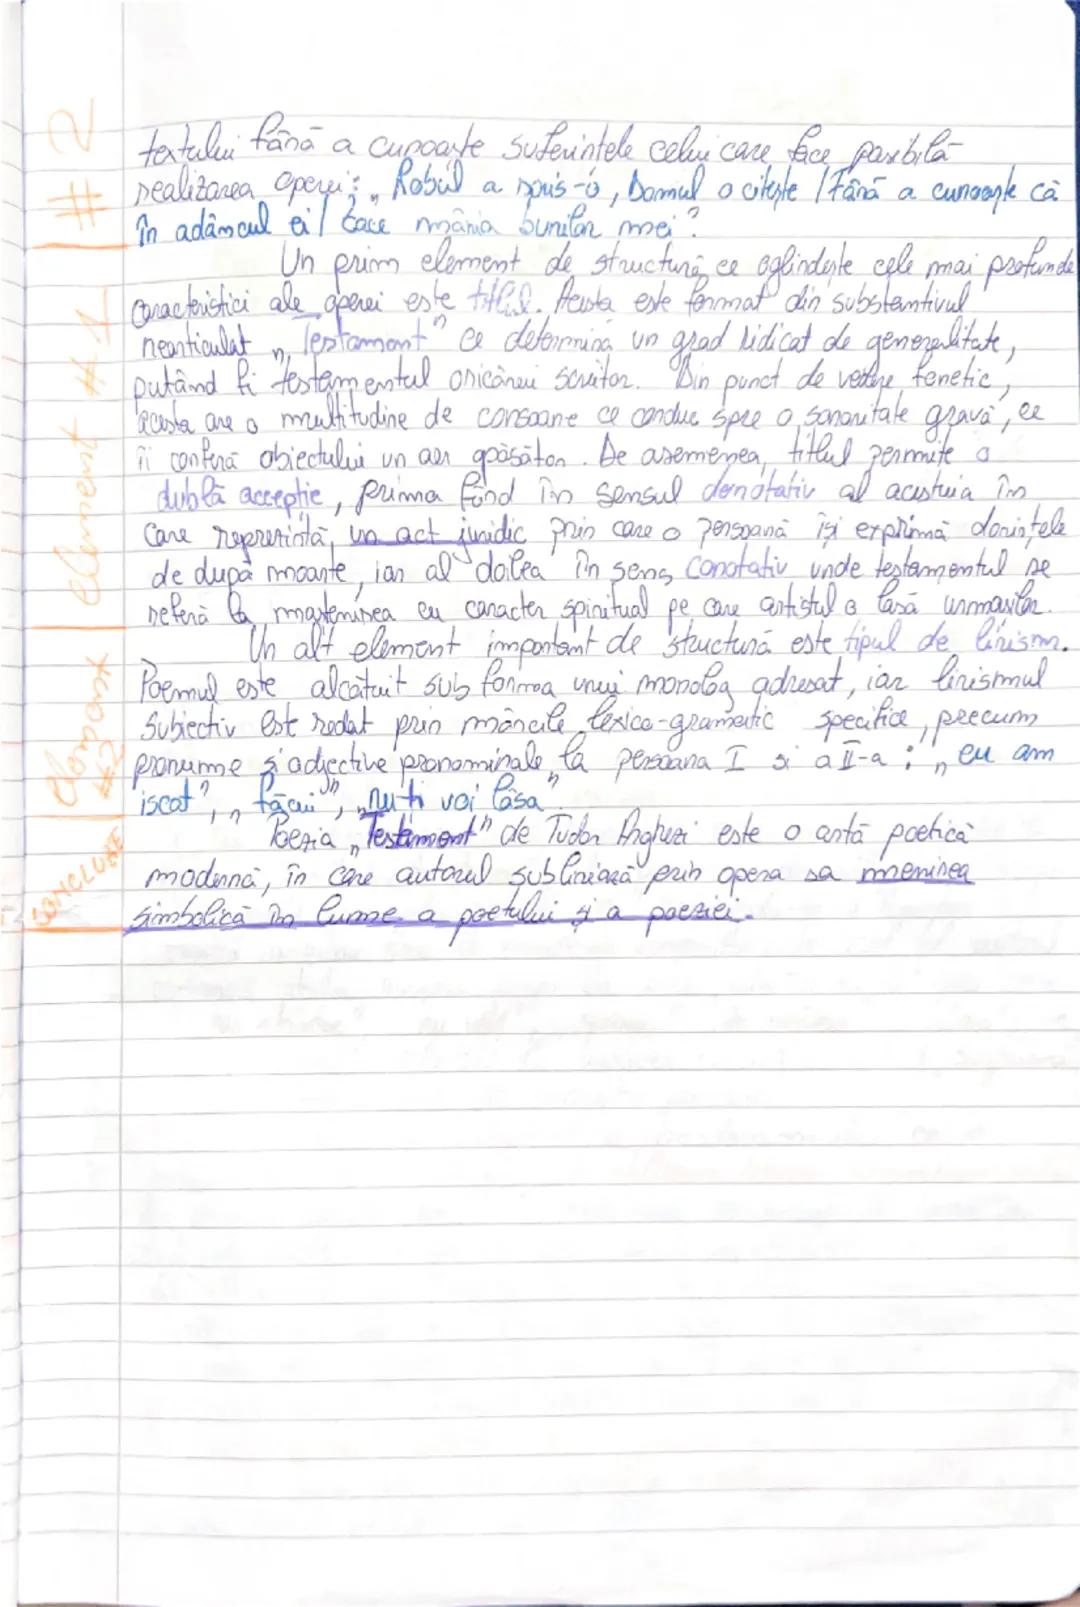 textului fără a cunoaște suferințele celui care face posibilă
realizarea operei: „Robul a scris-o, Domnul o citește / Fără a cunoaște că
în adâncul ei / Zace mânia bunilor mei”
# 2
Un prim element de structură ce oglindește cele mai profunde
caracteristici ale operei este titlul. Acesta este format din substantivul
nearticulat „Testament” ce determină un grad ridicat de generalitate,
putând fi testamentul oricărui scriitor. Din punct de vedere fonetic,
acesta are o multitudine de consoane ce conduc spre o sonoritate gravă, ce
îi conferă obiectului un aer apăsător. De asemenea, titlul permite o
dublă accepție, prima fiind în sensul denotativ al acestuia în
care reprezintă un act juridic prin care o persoană își exprimă dorințele
de după moarte, iar al doilea în sens conotativ unde testamentul se
referă la moștenirea cu caracter spiritual pe care artistul o lasă urmașilor.
element # 1
Un alt element important de structură este tipul de lirism.
Poemul este alcătuit sub forma unui monolog adresat, iar lirismul
subiectiv est redat prin mărcile lexico-gramatic specifice, precum
pronume și adjective pronominale la persoana I si a II-a: „eu am
iscat”, „făcui”, „nu-ți voi lăsa”.
element
#2
Poezia „Testament” de Tudor Arghezi este o artă poetică
modernă, în care autorul subliniază prin opera sa menirea
simbolică în lume a poetului și a poeziei.
CONCLUZIE